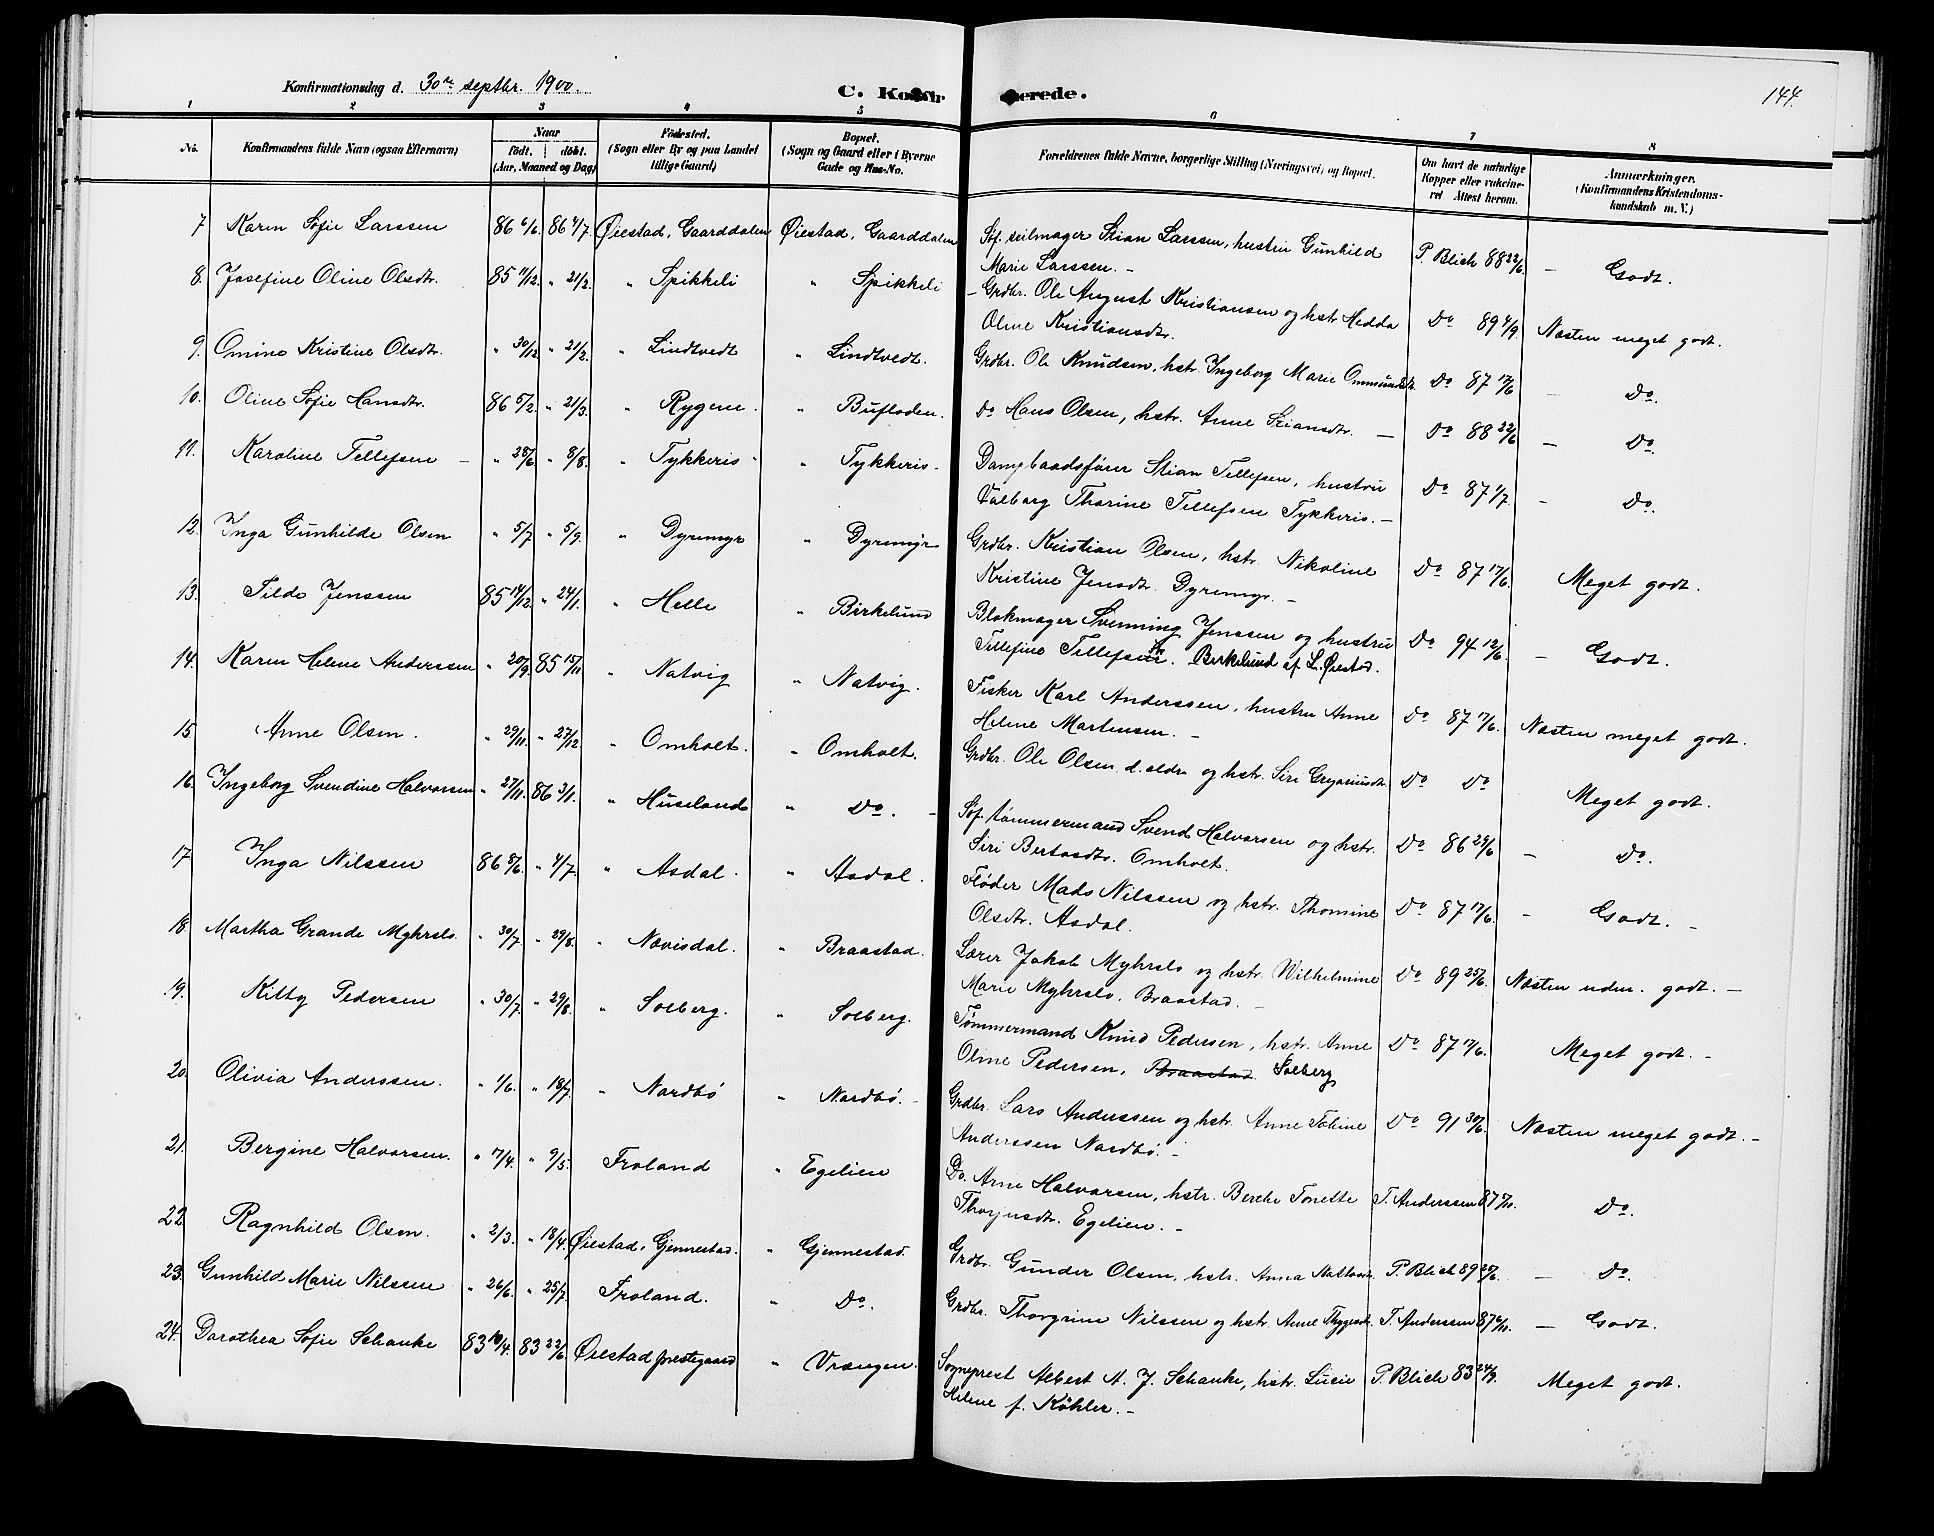 Konfirmationsdag d. 30te septbr. 1900.
C. Konfir erede.
144.
1 2 3 4 5 6 7 8
No. Konfirmandens fulde Navn (ogsaa Efternavn) Naar født. døbt. (Aar, Maaned og Dag) Fødested. (Sogn eller By og paa Landet tillige Gaard) Bopæl. (Sogn og Gaard eller i Byerne Gade og Hus-No. Forældrenes fulde Navne, borgerlige Stilling (Næringsvei) og Bopæl. Om havt de naturlige Kopper eller vakcineret Attest herom. Anmærkninger. (Konfirmandens Kristendomskundskab m. V.)
7 Karen Sofie Larssen 86 6/6. 86 4/7. Øiestad, Gaarddalen Øiestad, Gaarddalen Søf. seilmager Stian Larssen, hustru Gunhild P. Blich 88 22/6. – Godt.
Marie Larssen. –
8. Josefine Oline Olsdtr. 85 11/12. " 21/2. " Spikkeli " Spikkeli – Grdbr. Ole August Kristiansen og hstr. Hedda Do 89 4/9. Næsten meget godt.
Oline Kristiansdtr.
9. Omine Kristine Olsdtr. " 30/12. " 21/2. " Lindtvedt " Lindtvedt. Grdbr. Ole Knudsen, hstr. Ingeborg Marie Ommundsdtr. Do 87 17/6. – Do.
10. Oline Sofie Hansdtr. 86 5/2. " 21/3. " Rygene. " Bufloden. Do Hans Olsen, hstr. Anne Stiansdtr. – Do 88 22/6 – Do.
11. Karoline Tellefsen – " 28/6 " 8/8. " Tykkeris " Tykkeris. Dampbaadsfører Stian Tellefsen, hustru Do 87 1/7. – Do.
Valborg Thorine Tellefsen Tykkeris. –
12. Inga Gunhilde Olsen " 5/7 " 5/9. " Dyremyr " Dyremyr Grdbr. Kristian Olsen, hstr. Nikoline Do 87 17/6. Meget godt.
Kristine Jensdtr. Dyremyr. –
13. Tilde Jenssen 85 14/12. " 24/1. " Helle " Birkelund Blokmager Svenning Jenssen og hustru Do 94 12/6. – Godt.
Tellefine Tellefsen. Birkelund af L. Øiestad.
14. Karen Helene Anderssen " 20/9. 85 15/11 " Natvig " Natvig. Fisker Karl Anderssen, hustru Anne Do 87 17/6. Næsten meget godt.
Helene Martensen. –
15 Anne Olsen. " 29/11. " 27/12 " Omholt. " Omholt. Grdbr. Ole Olsen d. ældre og hstr. Siri Gregoriusdtr. Do Do Meget godt.
16. Ingeborg Svendine Halvorsen " 27/11. 86 3/1. " Huseland " Do. – Søf. tømmermand Svend Halvorsen og hstr. Do 86 24/6 – Do.
Siri Bertosdtr. Omholt.
17 Inga Nilssen 86 8/6. " 4/7. " Asdal. " Asdal. Fløder Mads Nilssen og hstr. Thomine Do 87 17/6. – Godt. –
Olsdtr. Asdal.
18. Martha Grande Myhrslo. " 30/7 " 29/8. " Nævisdal. " Braastad. Lærer Jakob Myhrslo og hstr. Wilhelmine Do 89 25/6. Næsten udm. godt. –
Marie Myhrslo. Braastad. –
19. Kitty Pedersen " 30/7. " 29/8. " Solberg. " Solberg. Tømmermand Knud Pedersen, hstr. Anne Do 87 17/6. Meget godt. –
Oline Pedersen, Braastad Solberg
20. Olivia Anderssen. " 1/6. " 18/7. " Nordbø " Nordbø. – Grdbr. Lars Anderssen og hstr. Anne Tobine Do 91 30/6. Næsten meget godt. –
Anderssen Nordbø. –
21. Bergine Halvorsen. " 7/4. " 9/5. Froland " Egelien Do. Arne Halvorsen, hstr. Berthe Tonette T. Anderssen 87 5/11. Do.
Thorjusdtr. Egelien. –
22. Ragnhild Olsen. " 2/3. " 18/4. Øiestad, Gjennestad. " Gjennestad. Grdbr. Gunder Olsen, hstr. Anna P. Blich 89 25/6. – Do.
23. Gunhild Marie Nilssen " 26/6. " 25/7. Froland. " Do. Grdbr. Thorgrim Nilssen og hstr. Anne T. Anderssen 87 – Godt.
24. Dorothea Sofie Schanke 83 10/4. 83 22/6. Øiestad prestegaard " Vrængen. Sogneprest Albert A. J. Schanke, hstr. Lucie P. Blich 83 24/9. Meget godt.
Helene f. Köhler. –